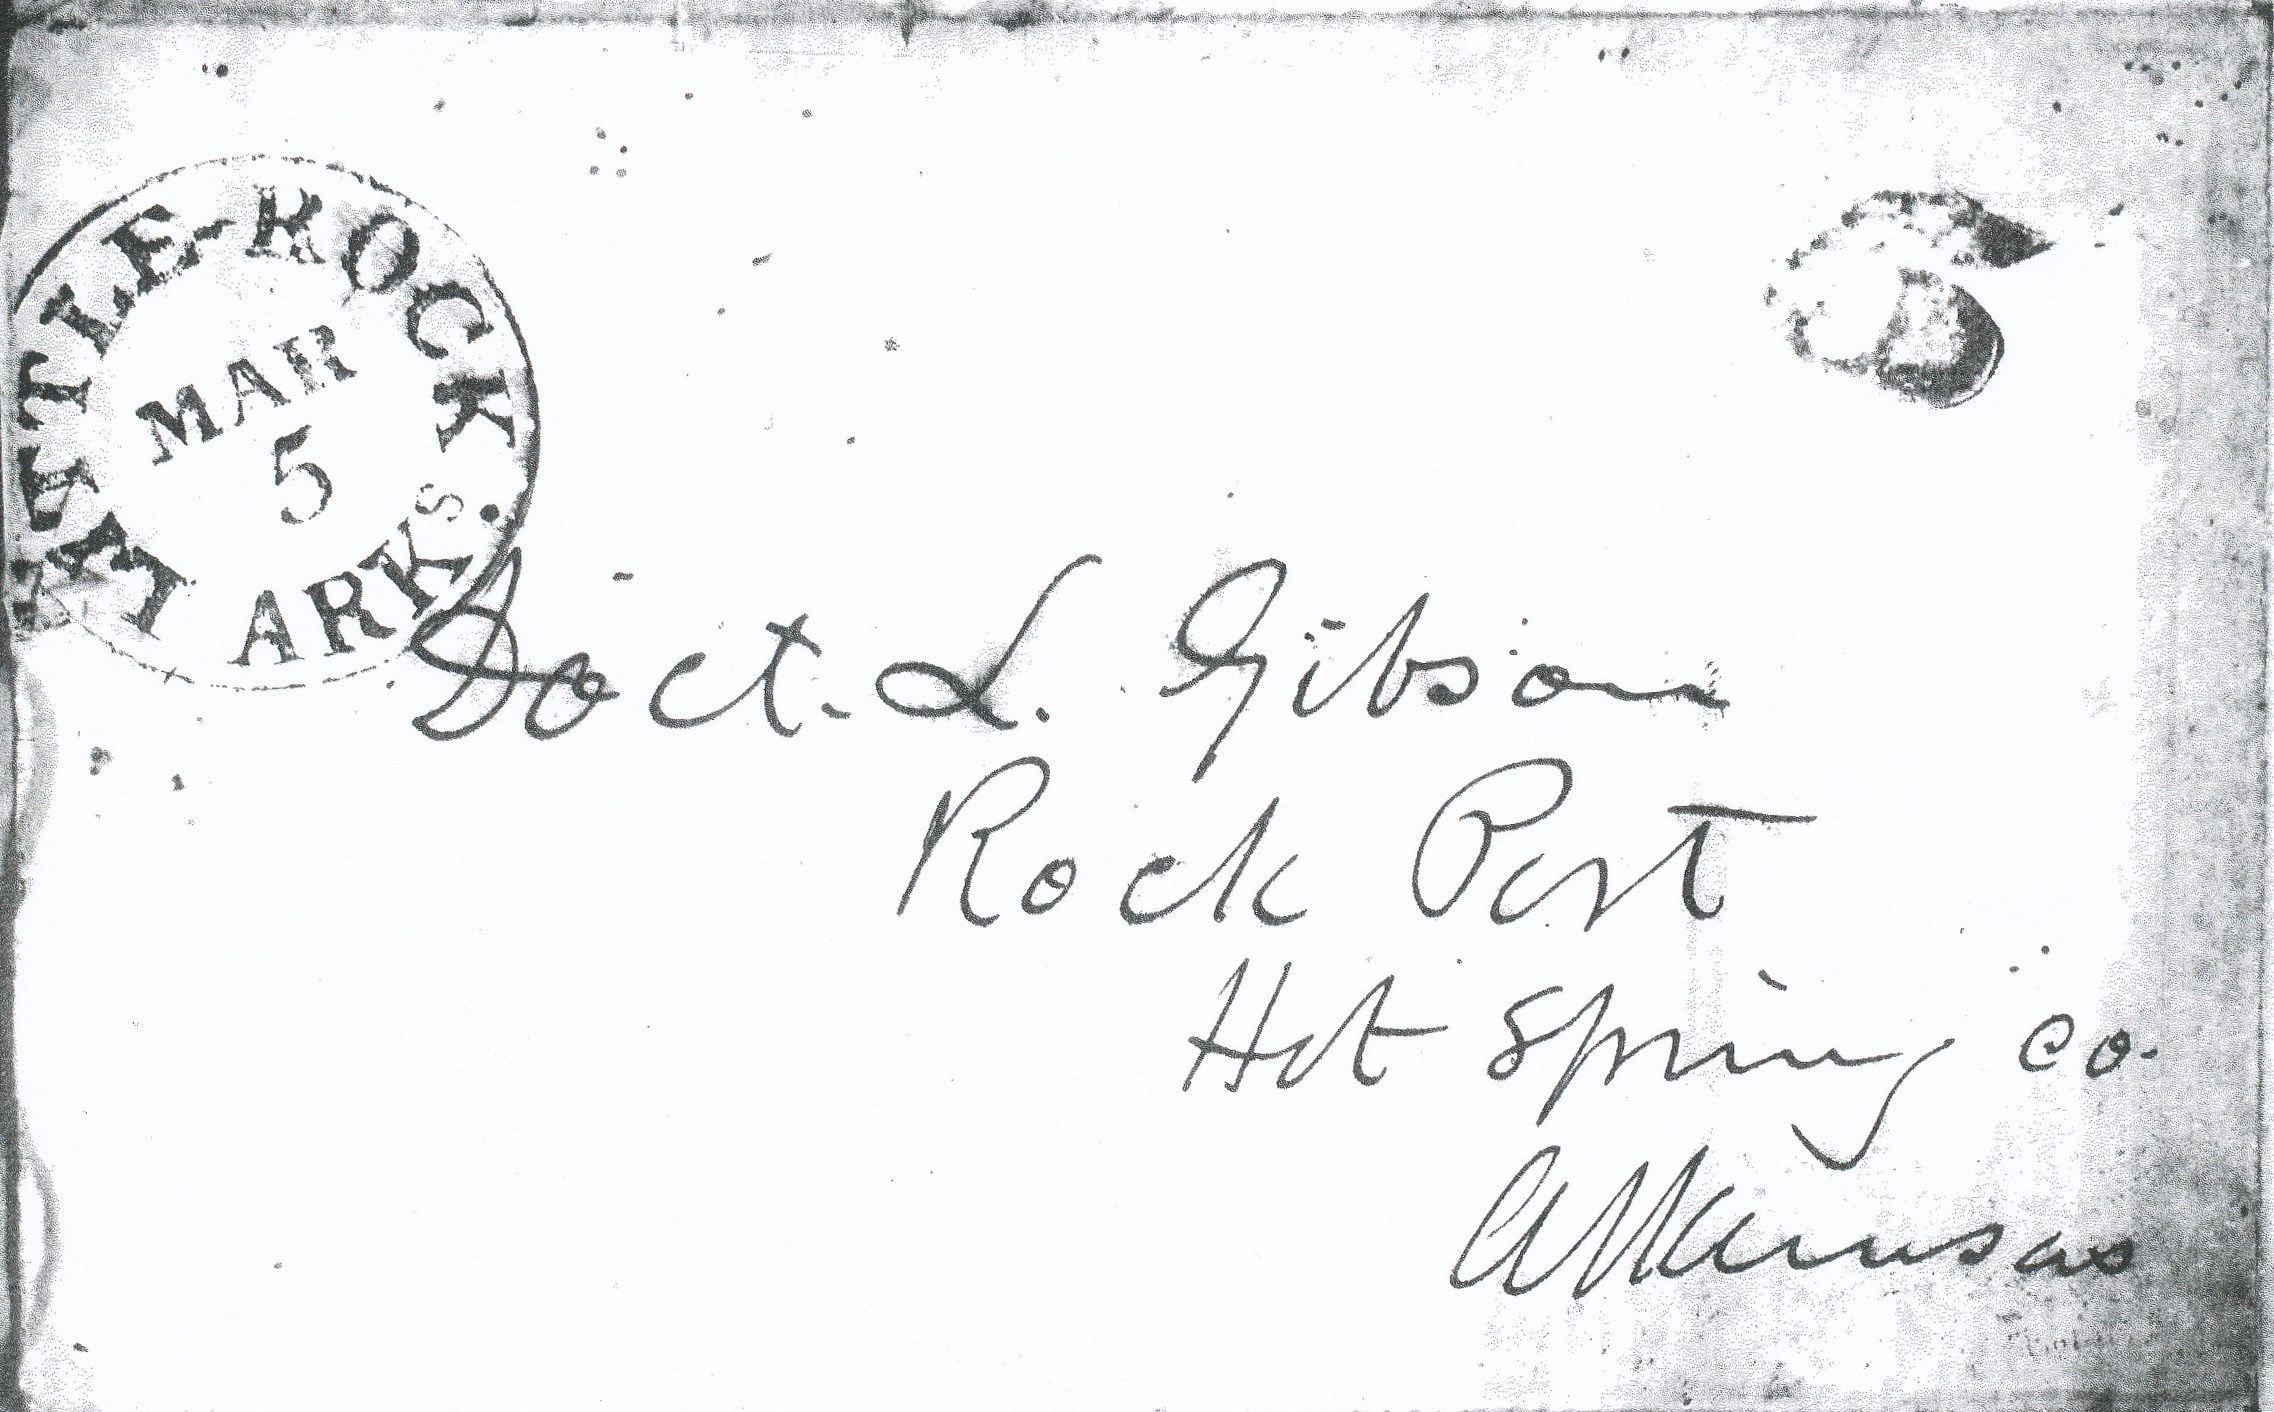 LITTLE-ROCK.
MAR
5
ARKS.
5
Doct. L. Gibson
Rock Port
Hot Spring Co.
Arkansas